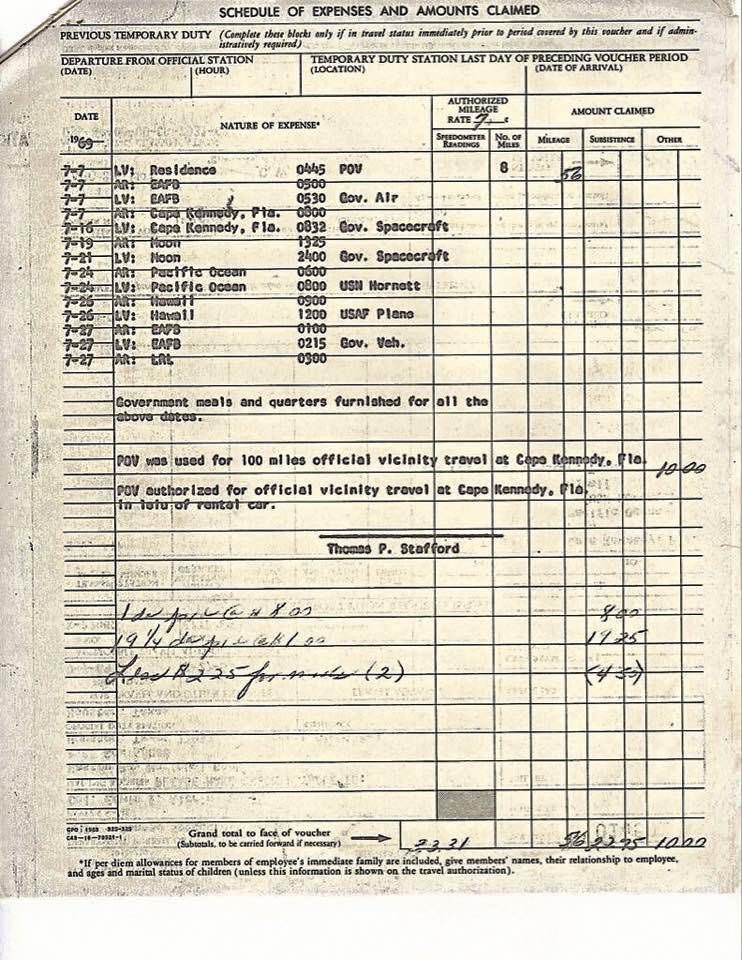 SCHEDULE OF EXPENSES AND AMOUNTS CLAIMED
PREVIOUS TEMPORARY DUTY (Complete these blocks only if in travel status immediately prior to period covered by this voucher and if admin-
istratively required)
DEPARTURE FROM OFFICIAL STATION
(DATE) (HOUR)
TEMPORARY DUTY STATION LAST DAY OF PRECEDING VOUCHER PERIOD
(LOCATION) (DATE OF ARRIVAL)
DATE
1969
NATURE OF EXPENSE*
AUTHORIZED
MILEAGE
RATE 7 c
AMOUNT CLAIMED
SPEEDOMETER
READINGS
NO. OF
MILES
MILEAGE
SUBSISTENCE
OTHER
7-7 LV: Residence 0445 POV 8 56
7-7 AR: EAFB 0500
7-7 LV: EAFB 0530 Gov. Air
7-7 AR: Cape Kennedy, Fla. 0800
7-16 LV: Cape Kennedy, Fla. 0832 Gov. Spacecraft
7-19 AR: Moon 1325
7-21 LV: Moon 2400 Gov. Spacecraft
7-24 AR: Pacific Ocean 0600
7-24 LV: Pacific Ocean 0800 USN Hornett
7-26 AR: Hawaii 0900
7-26 LV: Hawaii 1200 USAF Plane
7-27 AR: EAFB 0100
7-27 LV: EAFB 0215 Gov. Veh.
7-27 AR: LRL 0300
Government meals and quarters furnished for all the
above dates.
POV was used for 100 miles official vicinity travel at Cape Kennedy, Fla. 10.00
POV authorized for official vicinity travel at Cape Kennedy, Fla.
in leiu of rental car.
Thomas P. Stafford
1 8.00 8.00
19 1/4 1.00 19.25
Less $2.25 for meals (2) (4.50)
GPO : 1968
Grand total to face of voucher
(Subtotals, to be carried forward if necessary)
33.31 56 22.75 10.00
*If per diem allowances for members of employee's immediate family are included, give members' names, their relationship to employee,
and ages and marital status of children (unless this information is shown on the travel authorization).